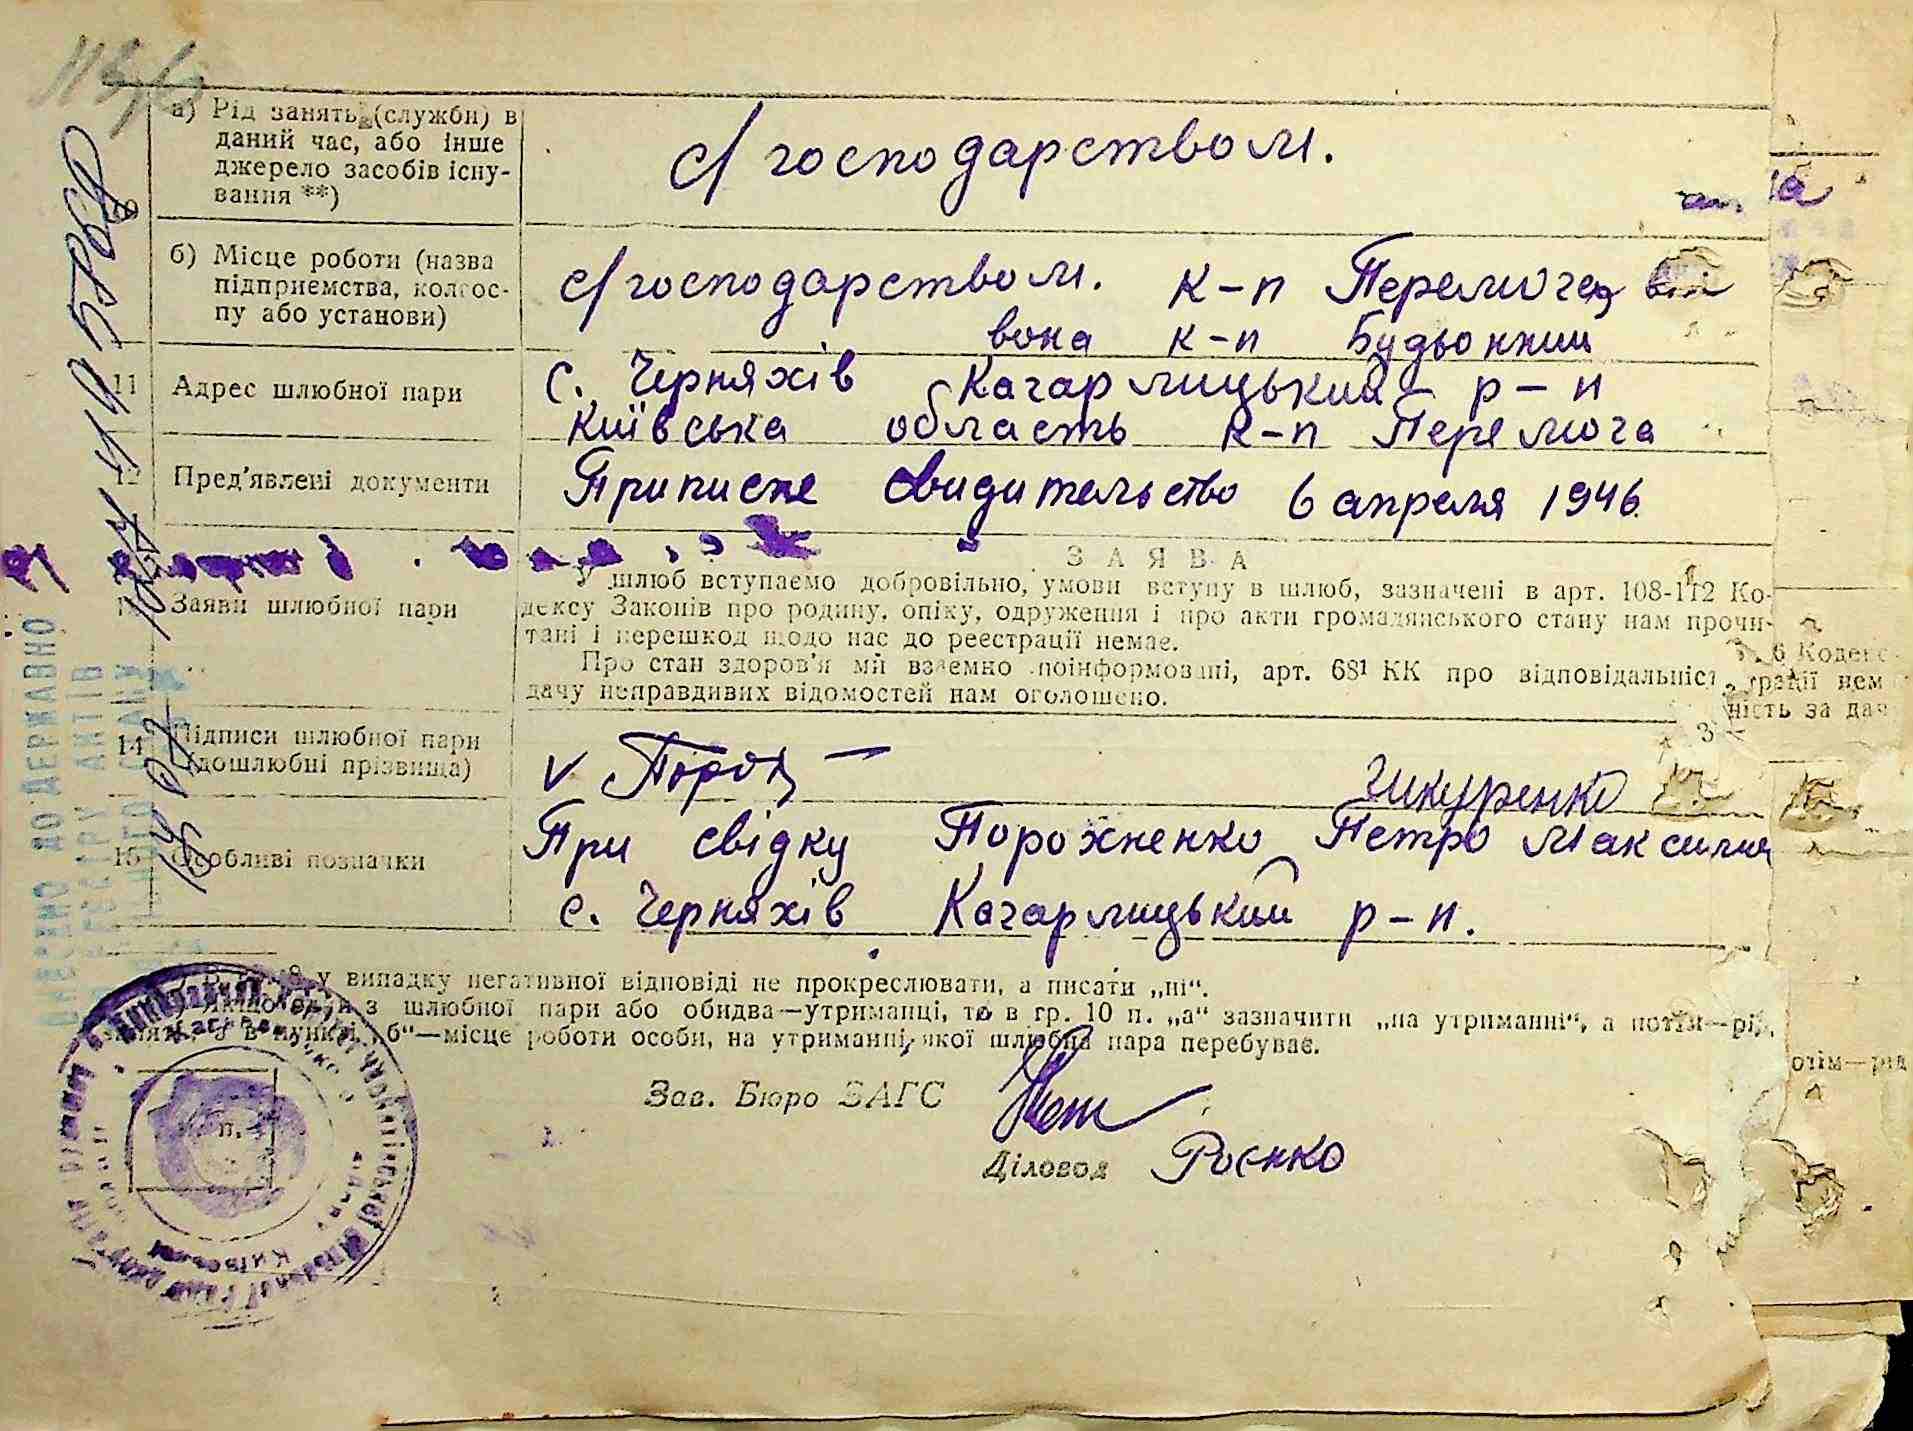 а) Рід занять (служби) в даний час, або інше джерело засобів існування **)
с/господарством.
б) Місце роботи (назва підприємства, колгоспу або установи)
с/господарством. к-п Перемога він
вона к-п Будьонний
11 Адрес шлюбної пари
с. Черняхів Кагарлицький р-н
Київська область к-п Перемога
12 Пред'явлені документи
Приписне свидительство 6 апреля 1946
ЗАЯВА
13 Заяви шлюбної пари
У шлюб вступаємо добровільно, умови вступу в шлюб, зазначені в арт. 108-112 Ко-
дексу Законів про родину, опіку, одруження і про акти громадянського стану нам прочи-
тані і перешкод щодо нас до реєстрації немає.
Про стан здоров'я ми взаємно поінформовані, арт. 68¹ КК про відповідальніст
дачу неправдивих відомостей нам оголошено.
14 Підписи шлюбної пари (дошлюбні прізвища)
v Порох
Шкуренко
15 Особливі позначки
При свідку Порохненко Петро Максим
с. Черняхів Кагарлицький р-н.
у випадку негативної відповіді не прокреслювати, а писати „ні“.
з шлюбної пари або обидва—утриманці, то в гр. 10 п. „а“ зазначити „на утриманні“, а потім—рід
„б“—місце роботи особи, на утриманні якої шлюбна пара перебуває.
Зав. Бюро ЗАГС
Діловод Роєнко
п.
ВНЕСЕНО ДО ДЕРЖАВНО
РЕЄСТРУ АКТІВ